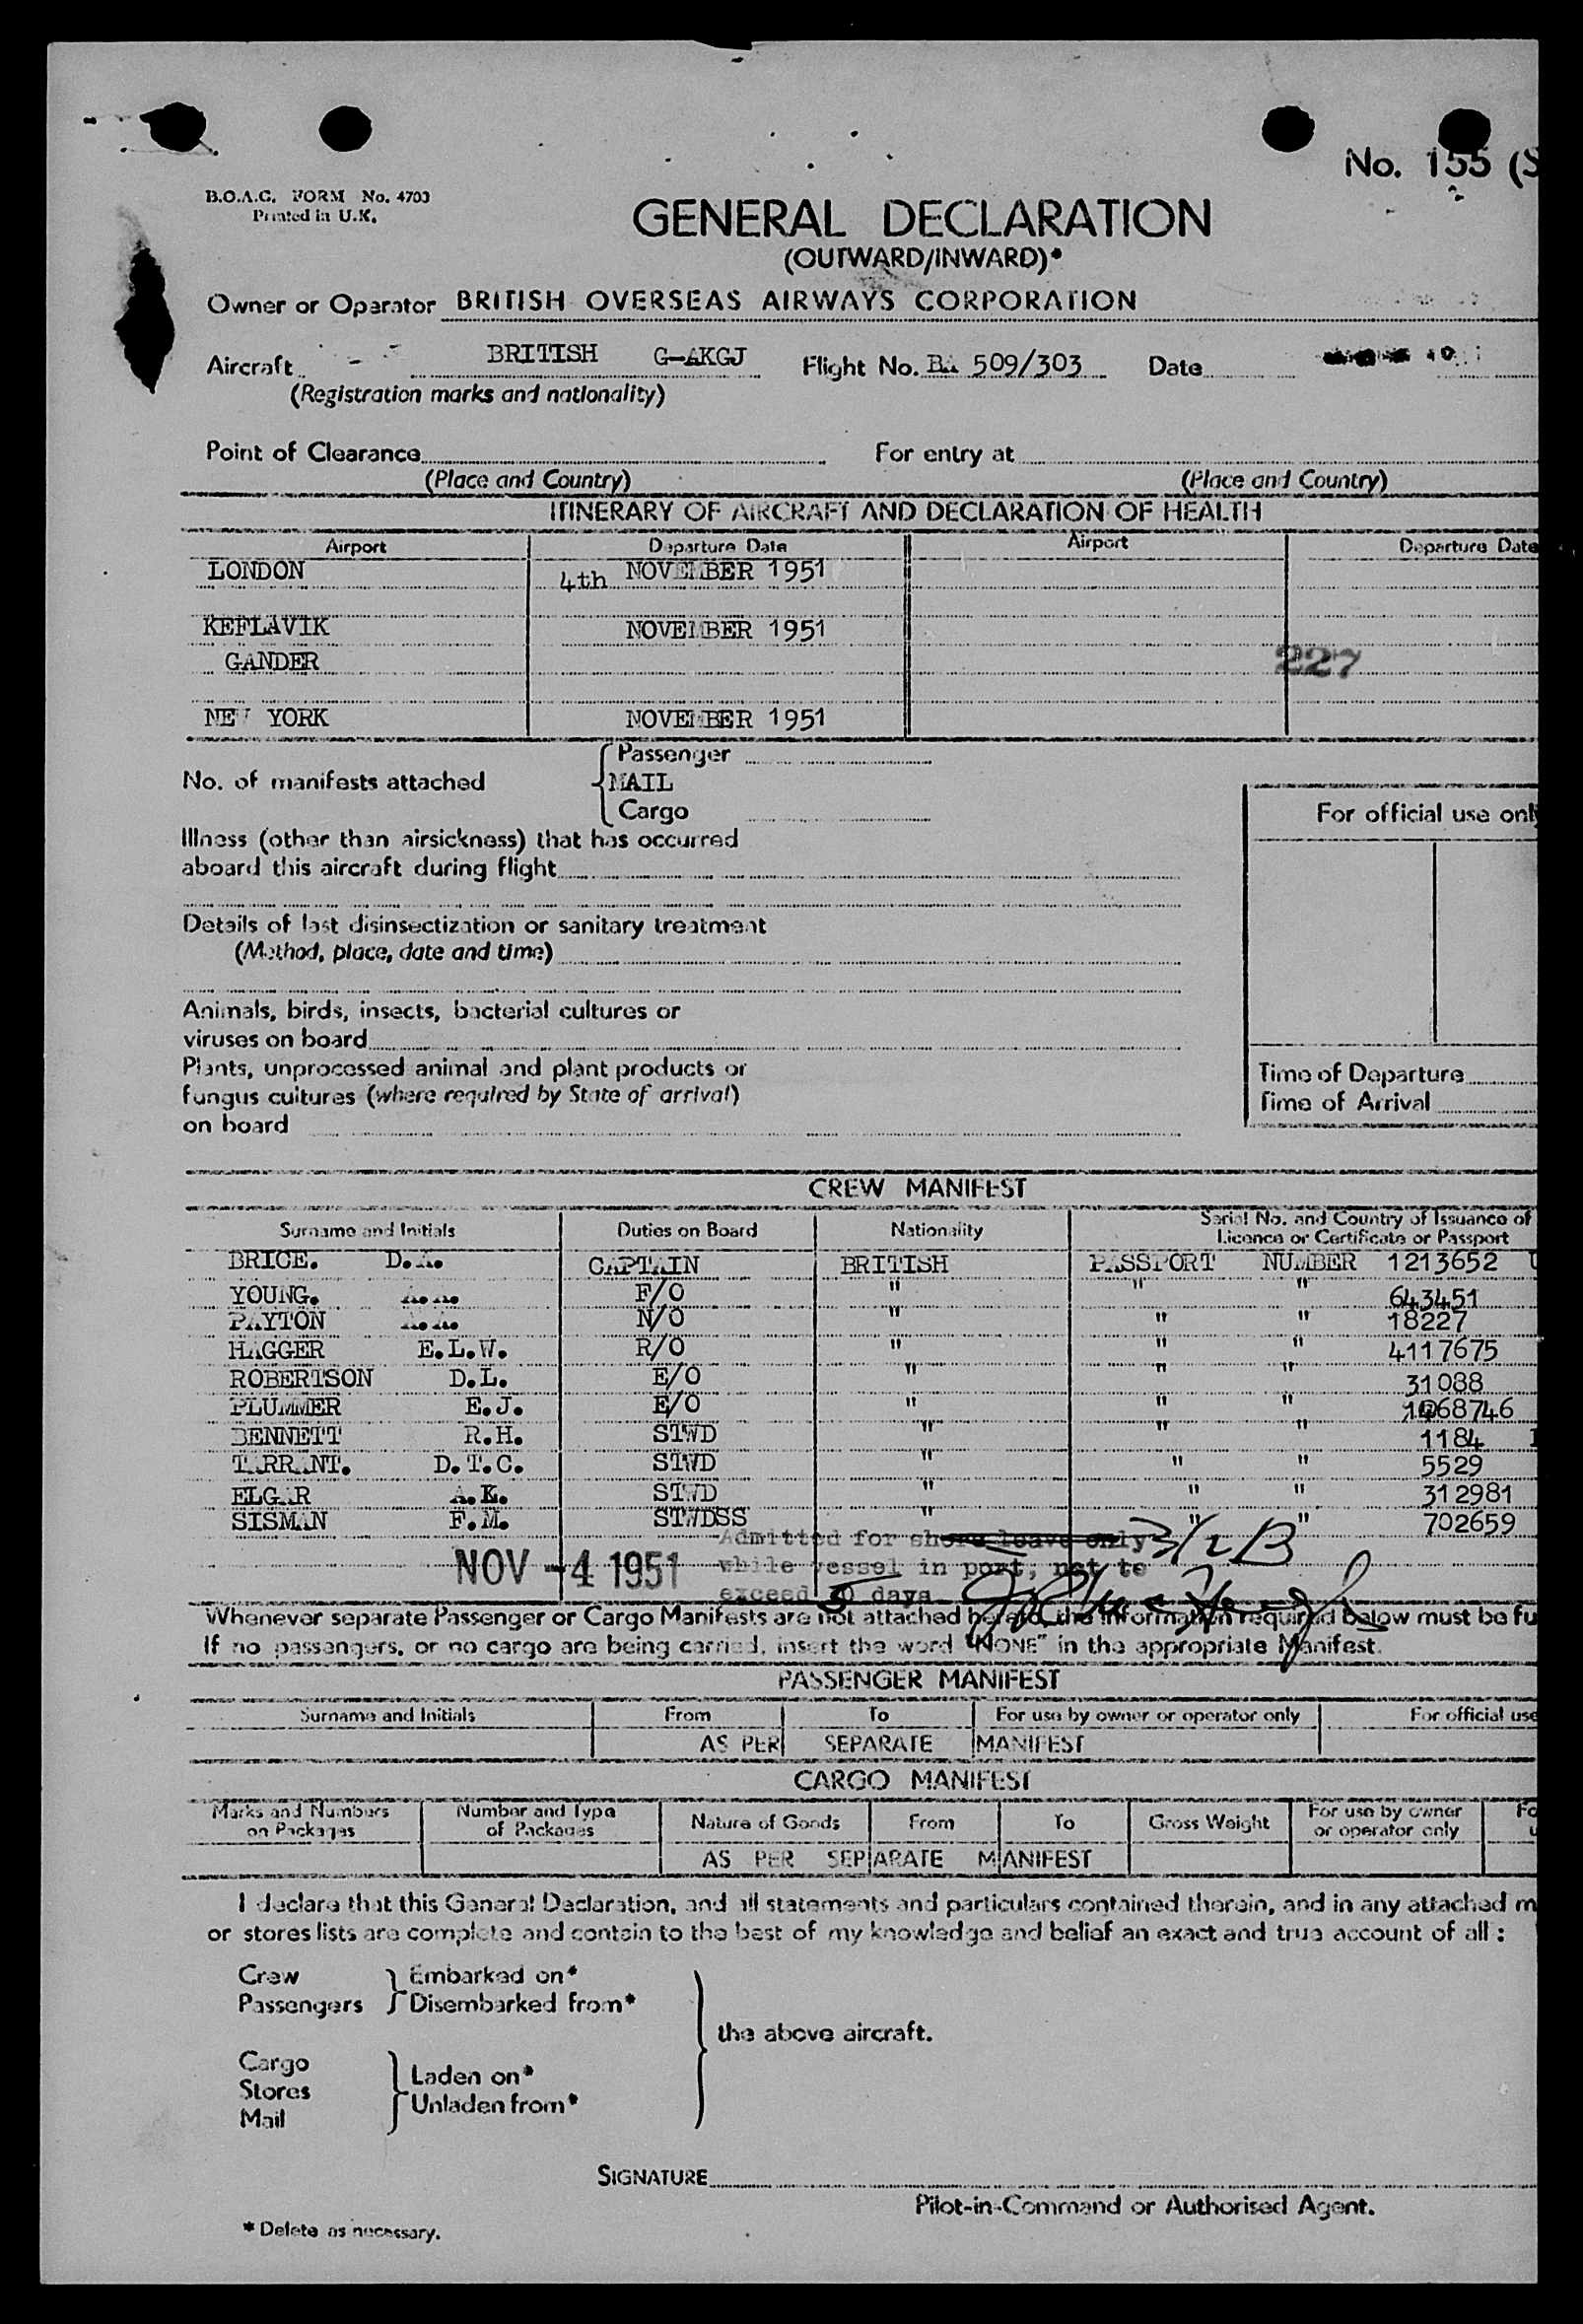 No. 155 (S
B.O.A.C. FORM No. 4703
Printed in U.K.
GENERAL DECLARATION
(OUTWARD/INWARD)*
Owner or Operator BRITISH OVERSEAS AIRWAYS CORPORATION
Aircraft BRITISH G-AKGJ Flight No. BA 509/303 Date
(Registration marks and nationality)
Point of Clearance For entry at
(Place and Country) (Place and Country)
ITINERARY OF AIRCRAFT AND DECLARATION OF HEALTH
Airport Departure Date Airport Departure Date
LONDON 4th NOVEMBER 1951
KEFLAVIK NOVEMBER 1951
GANDER 227
NEW YORK NOVEMBER 1951
Passenger
No. of manifests attached MAIL
Cargo
For official use only
Illness (other than airsickness) that has occurred
aboard this aircraft during flight
Details of last disinsectization or sanitary treatment
(Method, place, date and time)
Animals, birds, insects, bacterial cultures or
viruses on board
Plants, unprocessed animal and plant products or
fungus cultures (where required by State of arrival)
on board
Time of Departure
Time of Arrival
CREW MANIFEST
Surname and Initials Duties on Board Nationality Serial No. and Country of Issuance of
Licence or Certificate or Passport
BRICE. D.A. CAPTAIN BRITISH PASSPORT NUMBER 1213652
YOUNG. A.A. F/O " " " 643451
PAYTON A.A. N/O " " " 18227
HAGGER E.L.W. R/O " " " 4117675
ROBERTSON D.L. E/O " " " 31088
PLUMMER E.J. E/O " " "
BENNETT R.H. STWD " " " 1184
TARRANT. D.T.C. STWD " " " 5529
ELGAR A.E. STWD " " " 312981
SISMAN F.M. STWDSS " " " 702659
Admitted for shore leave only 3/2 B
NOV -4 1951 while vessel in port, not to
exceed days
Whenever separate Passenger or Cargo Manifests are not attached hereto, the information required below must be fu
If no passengers, or no cargo are being carried, insert the word "NONE" in the appropriate Manifest.
PASSENGER MANIFEST
Surname and Initials From To For use by owner or operator only For official use
AS PER SEPARATE MANIFEST
CARGO MANIFEST
Marks and Numbers on Packages Number and Type of Packages Nature of Goods From To Gross Weight For use by owner or operator only Fo
AS PER SEPARATE MANIFEST
I declare that this General Declaration, and all statements and particulars contained therein, and in any attached m
or stores lists are complete and contain to the best of my knowledge and belief an exact and true account of all :
Crew Embarked on*
Passengers Disembarked from*
the above aircraft.
Cargo
Stores Laden on*
Mail Unladen from*
SIGNATURE
Pilot-in-Command or Authorised Agent.
* Delete as necessary.